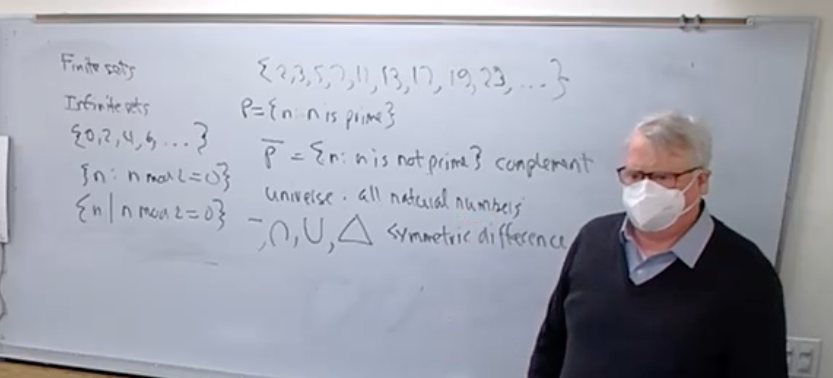 Finite sets
Infinite sets
{0,2,4,6,...}
{n: n mod 2=0}
{n | n mod 2=0}
{2,3,5,7,11,13,17,19,23,...}
P={n: n is prime}
P̅ = {n: n is not prime} complement
universe. all natural numbers
¯,∩,∪,△ symmetric difference